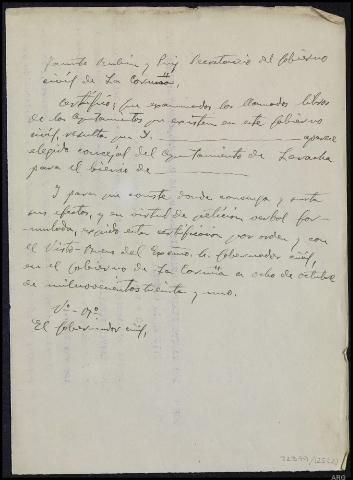 Jacinto Rubin y Puig Secretario del Gobierno
civil de La Coruña,
Certifico; que examinados los llamados libros
de los Ayuntamientos que existen en este Gobierno
civil, resulta que D. ____________ aparece
elegido concejal del Ayuntamiento de Laracha
para el bienio de ____________
Y para que conste donde convenga y surta
sus efectos, y en virtud de petición verbal for-
mulada, expido esta certificación por orden y con
el Visto-Bueno del Excmo. Sr. Gobernador civil,
en el Gobierno de La Coruña a ocho de octubre
de mil novecientos treinta y uno.
Vº-Bº
El Gobernador civil,
ARG